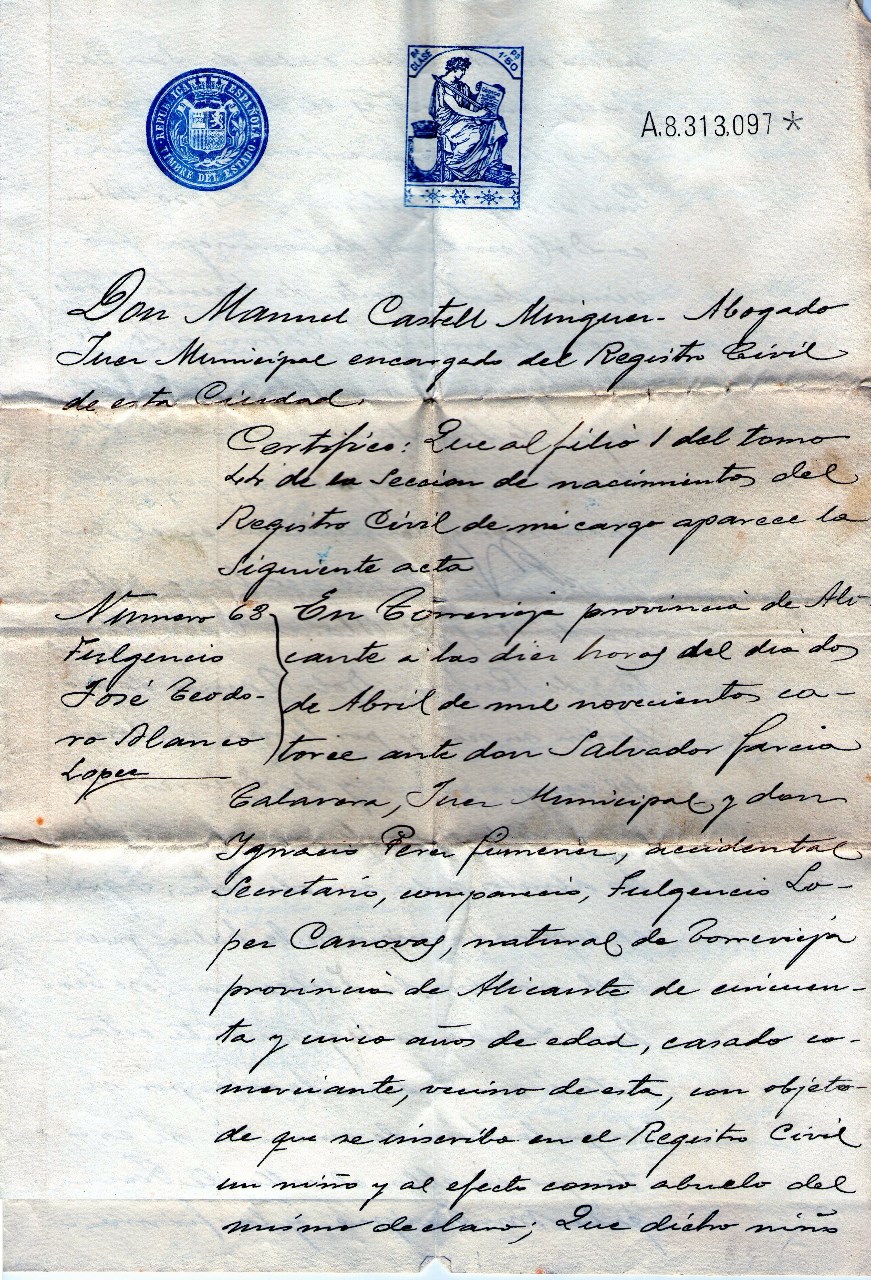 REPUBLICA ESPAÑOLA
TIMBRE DEL ESTADO
8ª CLASE
1'50 Pts
A.8.313.097 *
Don Manuel Castell Minguez - Abogado
Juez Municipal encargado del Registro Civil
de esta Ciudad
Certifico: Que al folio 1 del tomo
44 de la Seccion de nacimientos del
Registro Civil de mi cargo aparece la
siguiente acta
Número 68
Fulgencio
José Teodo-
ro Blanco
Lopez
En Torrevieja provincia de Ali-
cante a las diez horas del dia dos
de Abril de mil novecientos ca-
torce ante don Salvador Garcia
Talavera, Juez Municipal y don
Ignacio Perez Gimenez, accidental
Secretario, comparecio, Fulgencio Lo-
pez Canovas, natural de Torrevieja
provincia de Alicante de cincuen-
ta y cinco años de edad, casado co-
merciante, vecino de esta, con objeto
de que se inscriba en el Registro Civil
un niño y al efecto como abuelo del
mismo declaro; Que dicho niño